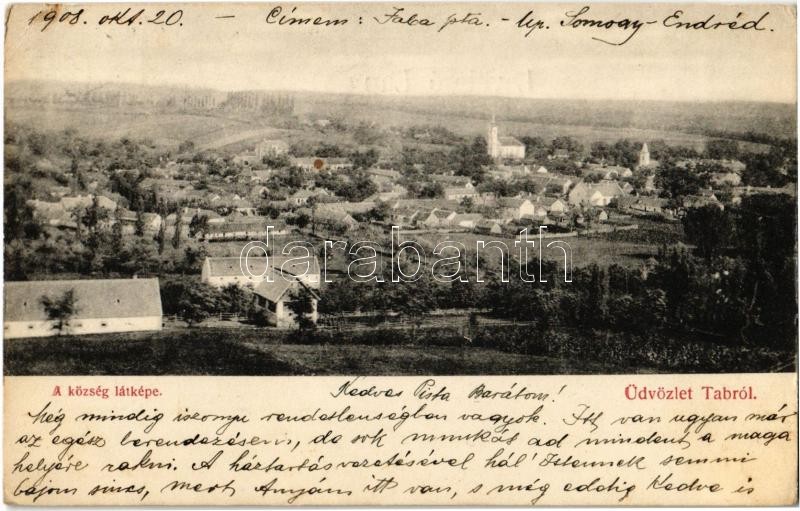 1908. okt. 20. — Címem: Faba pta. - up. Somogy-Endréd.
darabanth
A község látképe.
Kedves Pista Barátom!
Üdvözlet Tabról.
Még mindig iszonyu rendetlenségban vagyok. Itt van ugyan már
az egész berendezésem, de sok munkát ad mindent a maga
helyére rakni. A háztartásvezetésével hál' Istennek semmi
bajom sincs, mert Anyám itt van, s még eddig kedve is